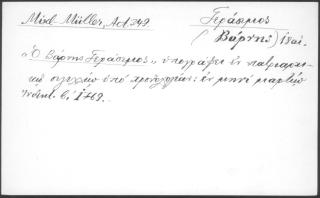 Mixl. Müller, Act. 249.
Γεράσιμος
(Βάρνης) 18αι.
«Ὁ Βάρνης Γεράσιμος», ὑπογράφει ἐν πατριαρχι-
κῷ σιγιλλίῳ ὑπὸ χρονολογίαν: ἐν μηνὶ μαρτίῳ
Ἰνδικτ. β΄, 1769.